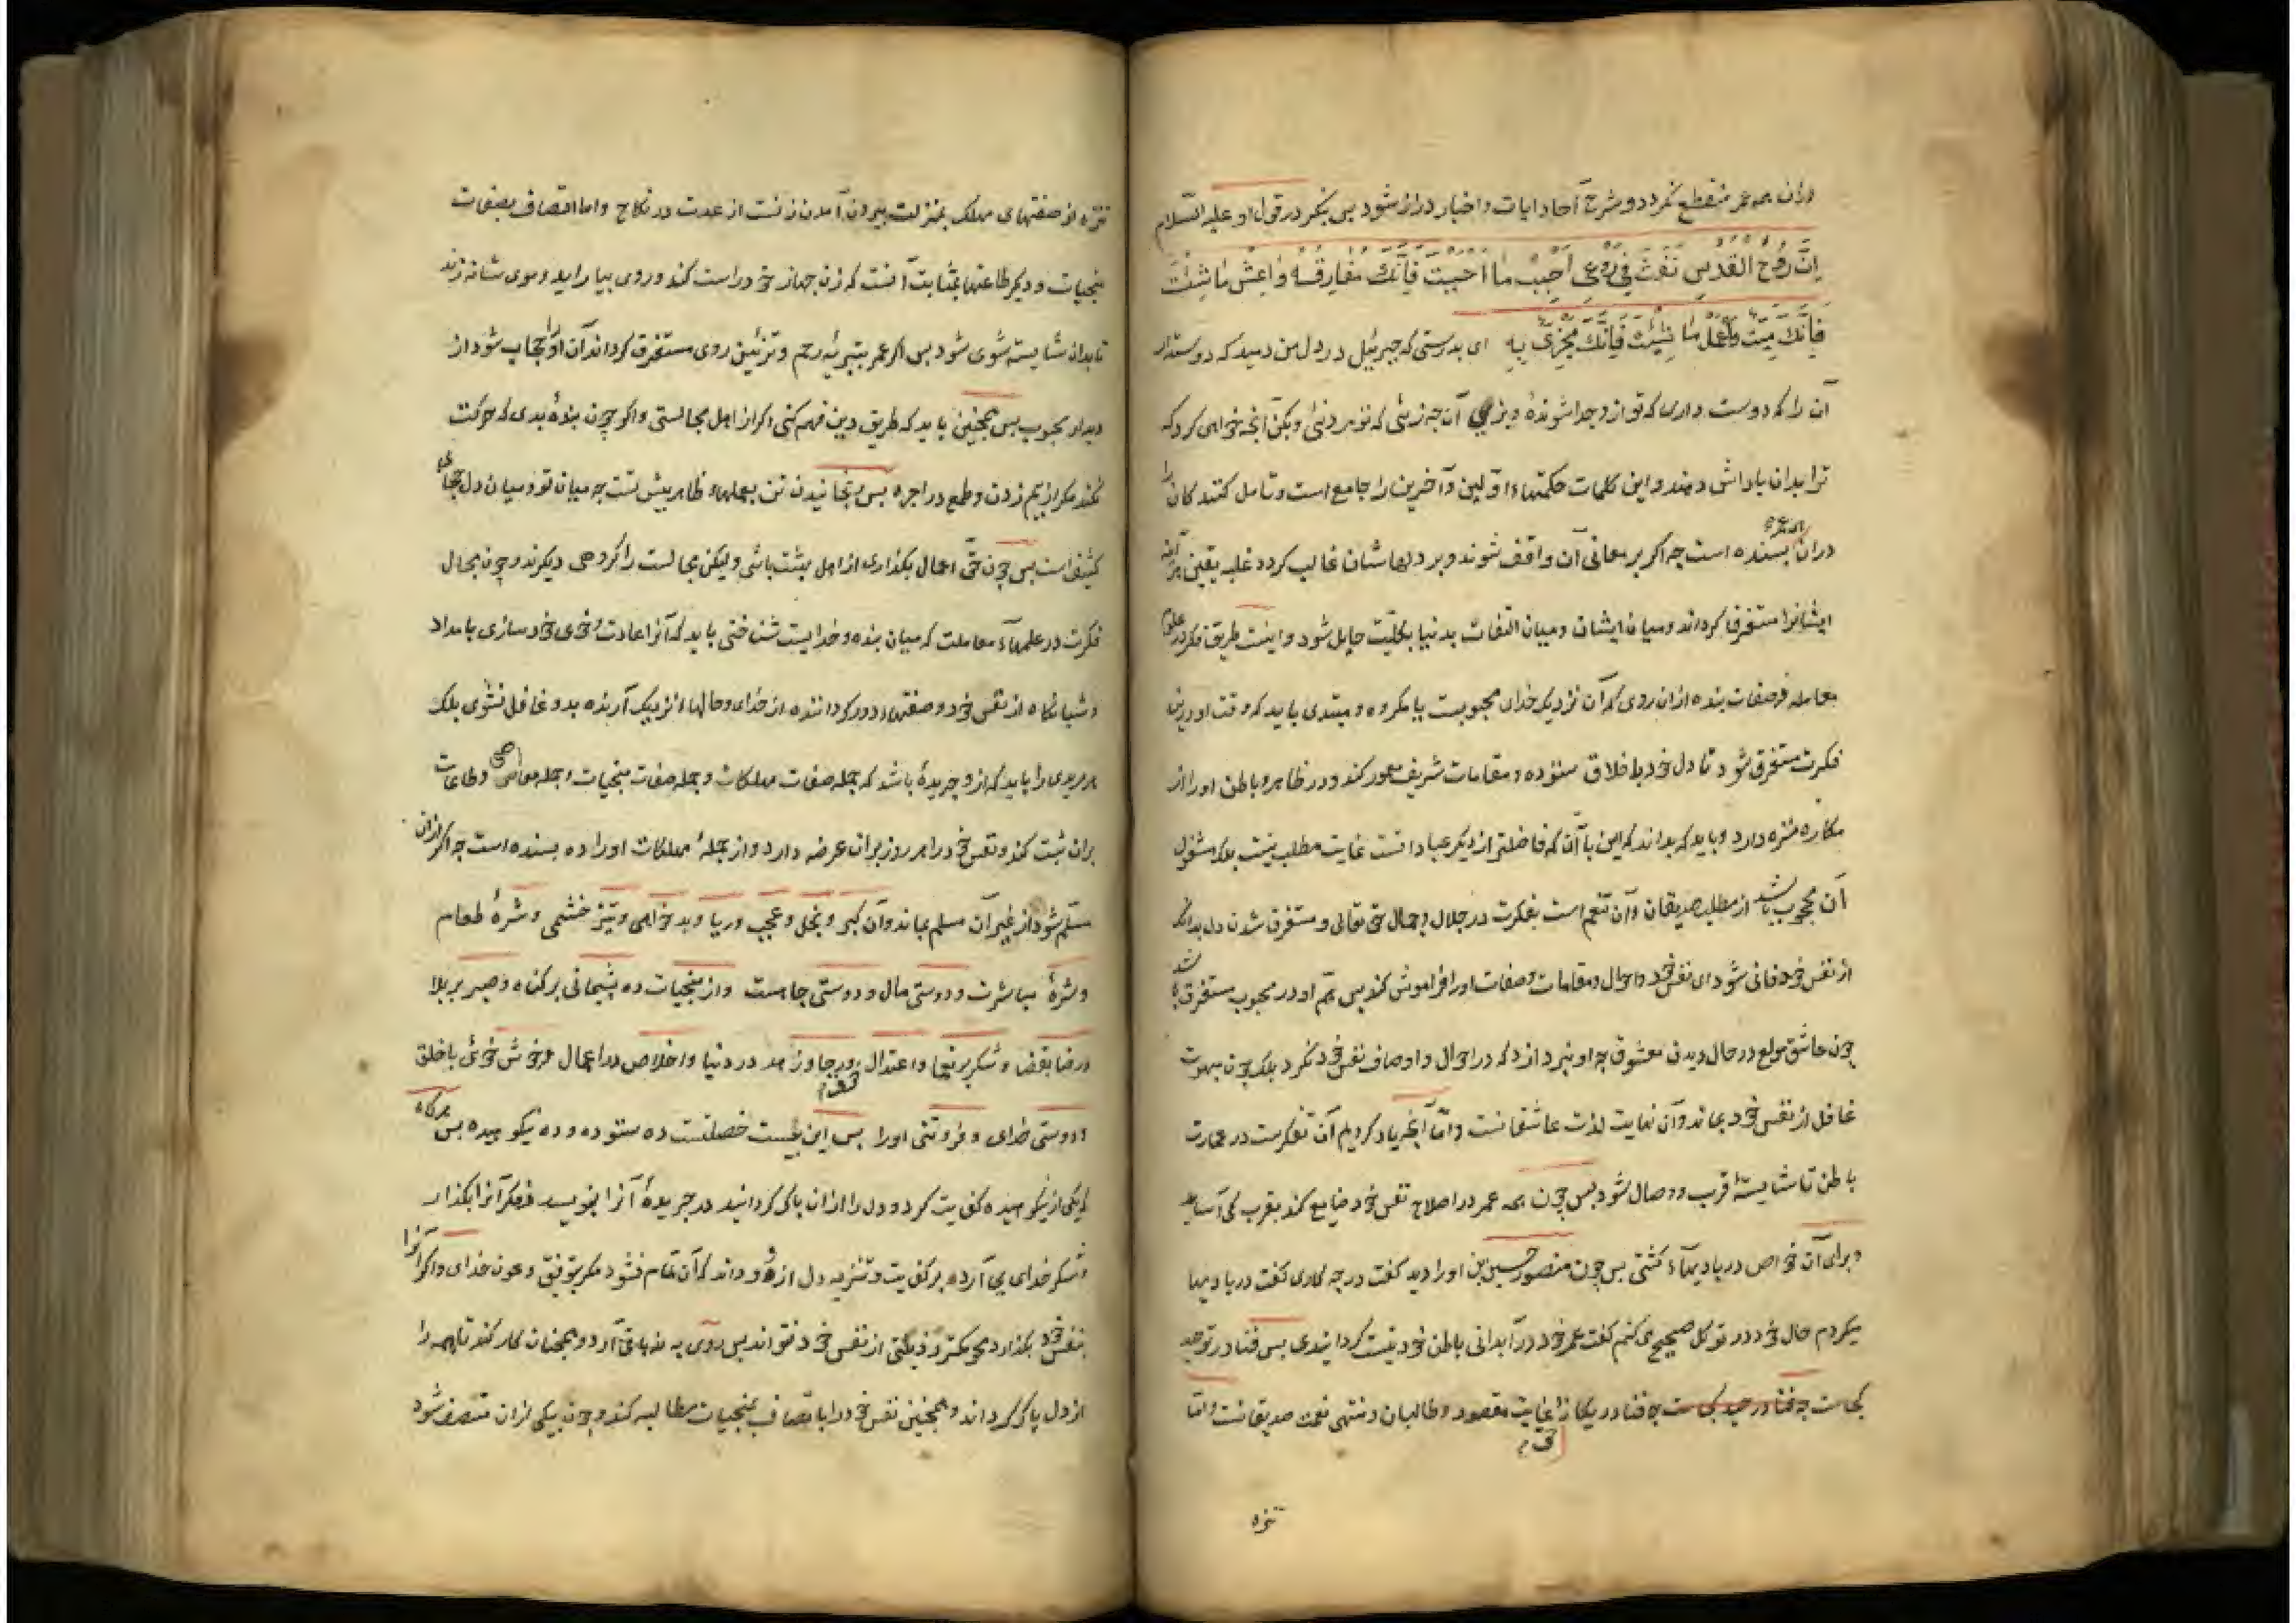 دران همه عمر منقطع نکردد و شرح آحاد ایات و اخبار دراز شود بس بنکر در قول او علیه السّلام
اِنَّ رُوحَ القُدُسِ نَفَثَ فِی رُوعِی اَحْبِبْ مَا اَحْبَبْتَ فَاِنَّكَ مُفَارِقُهُ وَاعِشْ مَا شِئْتَ
فَاِنَّكَ مَیِّت وَاعْمَل مَا شِئْتَ فَاِنَّكَ مَجْزِیٌّ بِهِ ای بدرستی که جبرئیل در دل من دمید که دوست دار
آن را که دوست داری که تو ازو جدا شوندهٔ و بزی آن چه زیئی که تو مردنئی و بکن آنچه خواهی کرد که
ترا بدان باداش دهند و این کلمات حکمتهاء اوّلین و آخرین را جامع است و تامل کنندکان را
دران همه عمر بسنده است چه اکر بر معانی آن واقف شوند و بر دلهاشان غالب کردد غلبه یقین هر آینه
ایشانرا مستغرق کرداند و میان ایشان و میان التفات بدنیا بکلیّت حایل شود و اینست طریق فکر در علوم
معامله و صفات بنده ازان روی که آن نزدیک خدای محبوبست یا مکروه و مبتدی باید که وقت او درین
فکرت مستغرق شود تا دل خود باخلاق ستوده و مقامات شریف معمور کند و در ظاهر و باطن او را از
مکاره منزه دارد و باید که بداند که این با آن که فاضلتر از دیکر عباداتست غایت مطلب نیست بلک مشغول
آن محجوب باشد از مطلب صدیقان و آن تنعم است بفکرت در جلال و جمال حق تعالی و مستغرق شدن دل بدانک
از نفس خود فانی شود ای نفس خود و احوال و مقامات و صفات او را فراموش کند بس همّ او در محبوب مستغرق باشد
چون عاشق مولع در حال دیدن معشوق چه او نپردازد که در احوال و اوصاف نفس خود نکرد بلک چون مبهوت
غافل از نفس خود بماند و آن نهایت لذت عاشقانست و امّا آنچه یاد کردیم آن تفکرست در عمارت
باطن تا شایستهٔ قرب و وصال شود بس چون همه عمر در اصلاح نفس خود ضایع کند بقرب کی آساید
و برای آن خواص در بادیهاء کشتی بس چون حسین بن منصور او را دید کفت در چه کاری کفت در بادیها
میکردم حال خود در توکل صحیح می کنم کفت عمر خود در آبدانی باطن خود نیست کردانیدی بس فنا در توحید
کجاست چه فنا در یکانه غایت مقصود و طالبان و منتهی نعمت صدیقانست و امّا
تنزه
تنزه از صفتهای مهلک بمنزلت بیرون آمدن زنست از عدت در نکاح و اما اتصاف بصفات
منجیات و دیکر طاعتها بمثابت آنست که زن جهاز خود راست کند و روی بیاراید و موی شانه زند
تا بدان شایسته شوی شود بس اکر عمر بتبرئه رحم و تزئین روی مستغرق کرداند آن او را حجاب شود از
دیدار محبوب بس همچنین باید که طریق دین فهم کنی اکر از اهل مجالستی و اکر چون بندهٔ بدی که حرکت
نکند مکر از بیم زدن و طمع در اجره بس رنجانیدن تن بعملهاء ظاهر بیش تست چه میان تو و میان دل حجابی
کثیف است بس چون حقّ اعمال بکذاری از اهل بهشت باشی و لیکن مجالست را کروهی دیکرند و چون مجال
فکرت در علمهاء معاملت که میان بنده و خدایست شناختی باید که آنرا عادت و خوی خود سازی بامداد
و شبانکاه از نفس خود و صفتهاء دور کرداننده از خدای و حالهاء نزدیک آرنده بدو غافل نشوی بلک
هر مریدی را باید که او جریدهٔ باشد که جمله صفات مهلکات و جمله صفات منجیات و جمله معاصی و طاعات
بران ثبت کند و نفس خود را هر روز بران عرضه دارد و از جملهٔ مهلکات او را ده بسنده است چه اکر ازان
مسلّم شود از غیر آن مسلم بماند و آن کبر و بخل و عجب و ریا و بد خواهی و تیز خشمی و شرهٔ طعام
و شرهٔ مباشرت و دوستی مال و دوستی جاهست و از منجیات ده بشیمانی بر کناه و صبر بر بلا
و رضا بقضا و شکر بر نعما و اعتدال خوف و رجا و زهد در دنیا و اخلاص در اعمال و خوش خوئی با خلق
و دوستی خدای و فروتنی او را بس این بیست خصلتست ده ستوده و ده نکوهیده بس هرکاه
که یکی از نکوهیده کفایت کردد و دل را ازان پاک کردانید در جریدهٔ آنرا بنویسد و فکر آنرا بکذارد
و شکر خدای بجای آرد بر کفایت و تنزیه دل ازو و داند که آن تمام نشود مکر بتوفیق و عون خدای و اکر آنرا
بنفس خود بکذارد محو کمتر رذیلتی از نفس خود نتواند بس روی به نه باقی آرد و همچنان کار کند تا همه را
از دل پاک کرداند و همچنین نفس خود را باتصاف بمنجیات مطالبه کند و چون بیکی ازان متصف شود